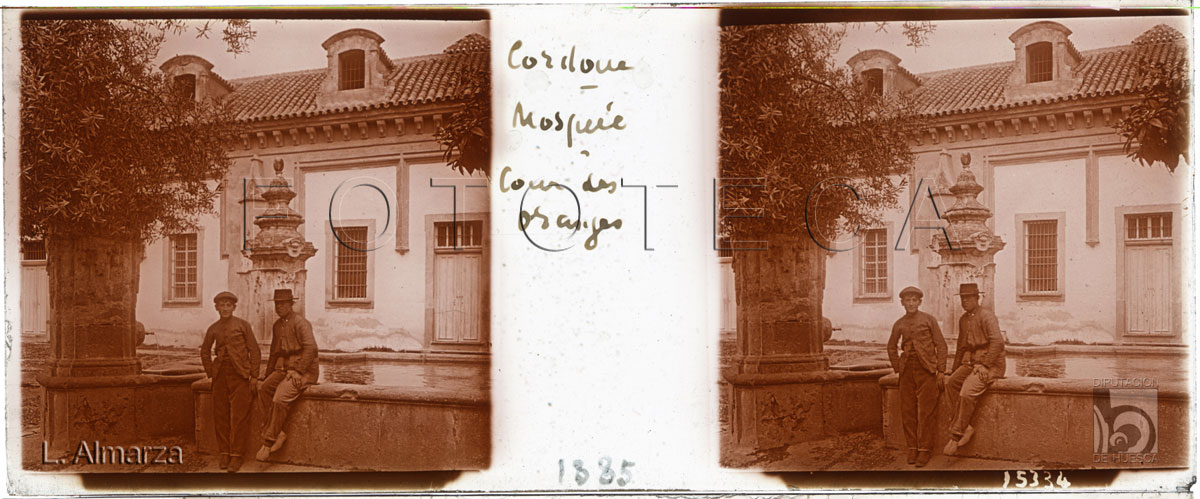 Cordoue
-
Mosquée
-
Cour des
oranges
FOTOTECA
1885
L. Almarza
DIPUTACIÓN
DE HUESCA
15334